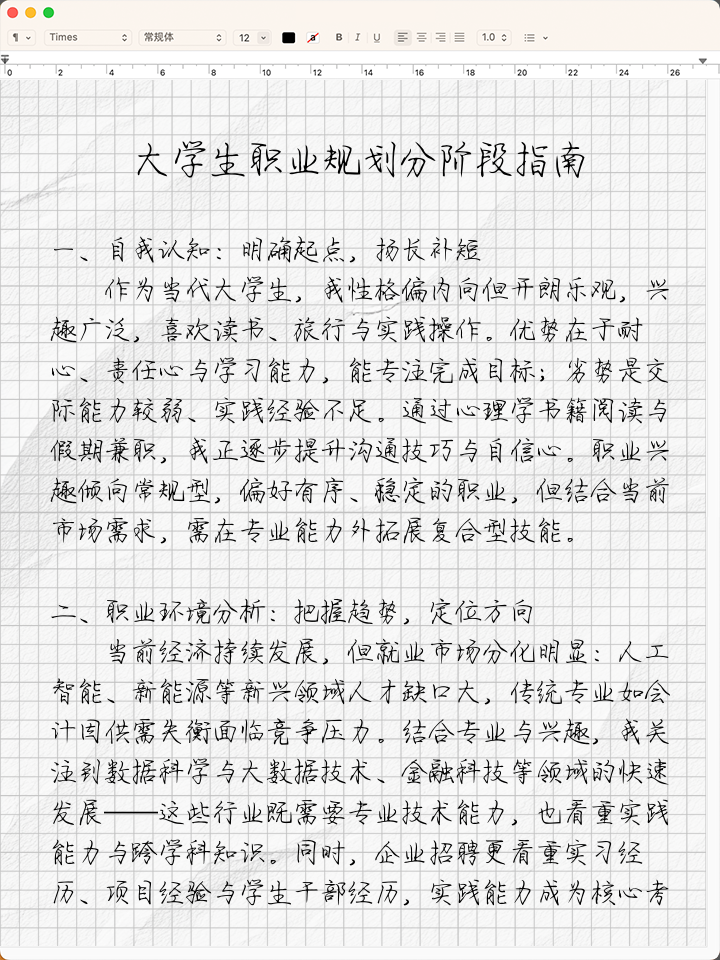 ¶
Times
常规体
12
a
B I U
1.0
0 2 4 6 8 10 12 14 16 18 20 22 24 26
大学生职业规划分阶段指南
一、自我认知：明确起点，扬长补短
作为当代大学生，我性格偏内向但开朗乐观，兴
趣广泛，喜欢读书、旅行与实践操作。优势在于耐
心、责任心与学习能力，能专注完成目标；劣势是交
际能力较弱、实践经验不足。通过心理学书籍阅读与
假期兼职，我正逐步提升沟通技巧与自信心。职业兴
趣倾向常规型，偏好有序、稳定的职业，但结合当前
市场需求，需在专业能力外拓展复合型技能。
二、职业环境分析：把握趋势，定位方向
当前经济持续发展，但就业市场分化明显：人工
智能、新能源等新兴领域人才缺口大，传统专业如会
计因供需失衡面临竞争压力。结合专业与兴趣，我关
注到数据科学与大数据技术、金融科技等领域的快速
发展——这些行业既需要专业技术能力，也看重实践
能力与跨学科知识。同时，企业招聘更看重实习经
历、项目经验与学生干部经历，实践能力成为核心考